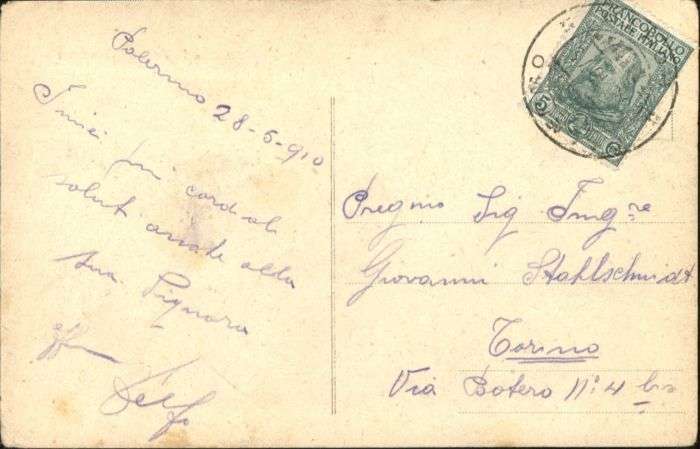 Palermo
28-6-910
I miei più cordiali
saluti anche alla
sua Signora
Pregmo Sig Ingre
Giovanni Stahlschmidt
Torino
Via Botero No 4 bis
FRANCOBOLLO
POSTALE ITALIANO
5